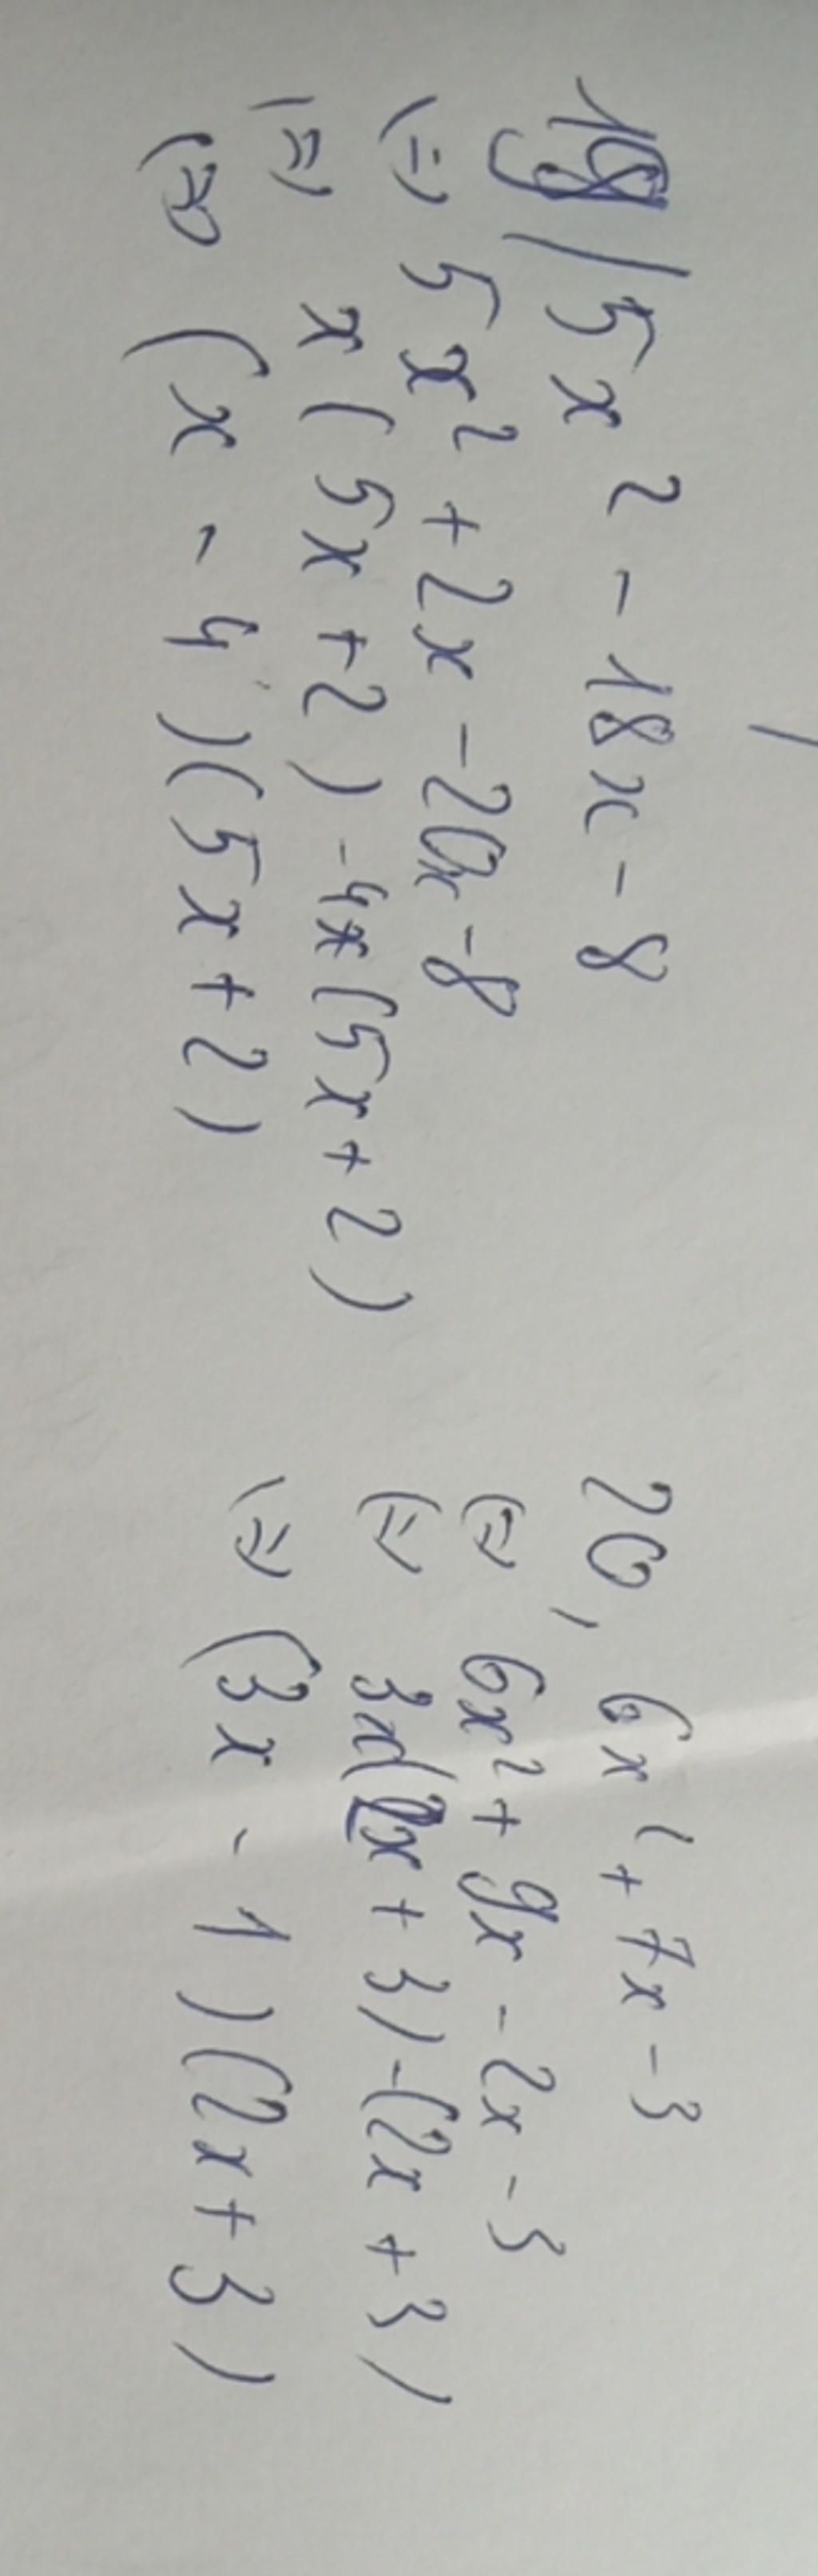 19/ 5x² - 18x - 8
(=) 5x² + 2x - 20x - 8
(=) x(5x + 2) - 4x(5x + 2)
(=) (x - 4)(5x + 2)
20, 6x² + 7x - 3
(=) 6x² + 9x - 2x - 3
(=) 3x(2x + 3) - (2x + 3)
(=) (3x - 1)(2x + 3)